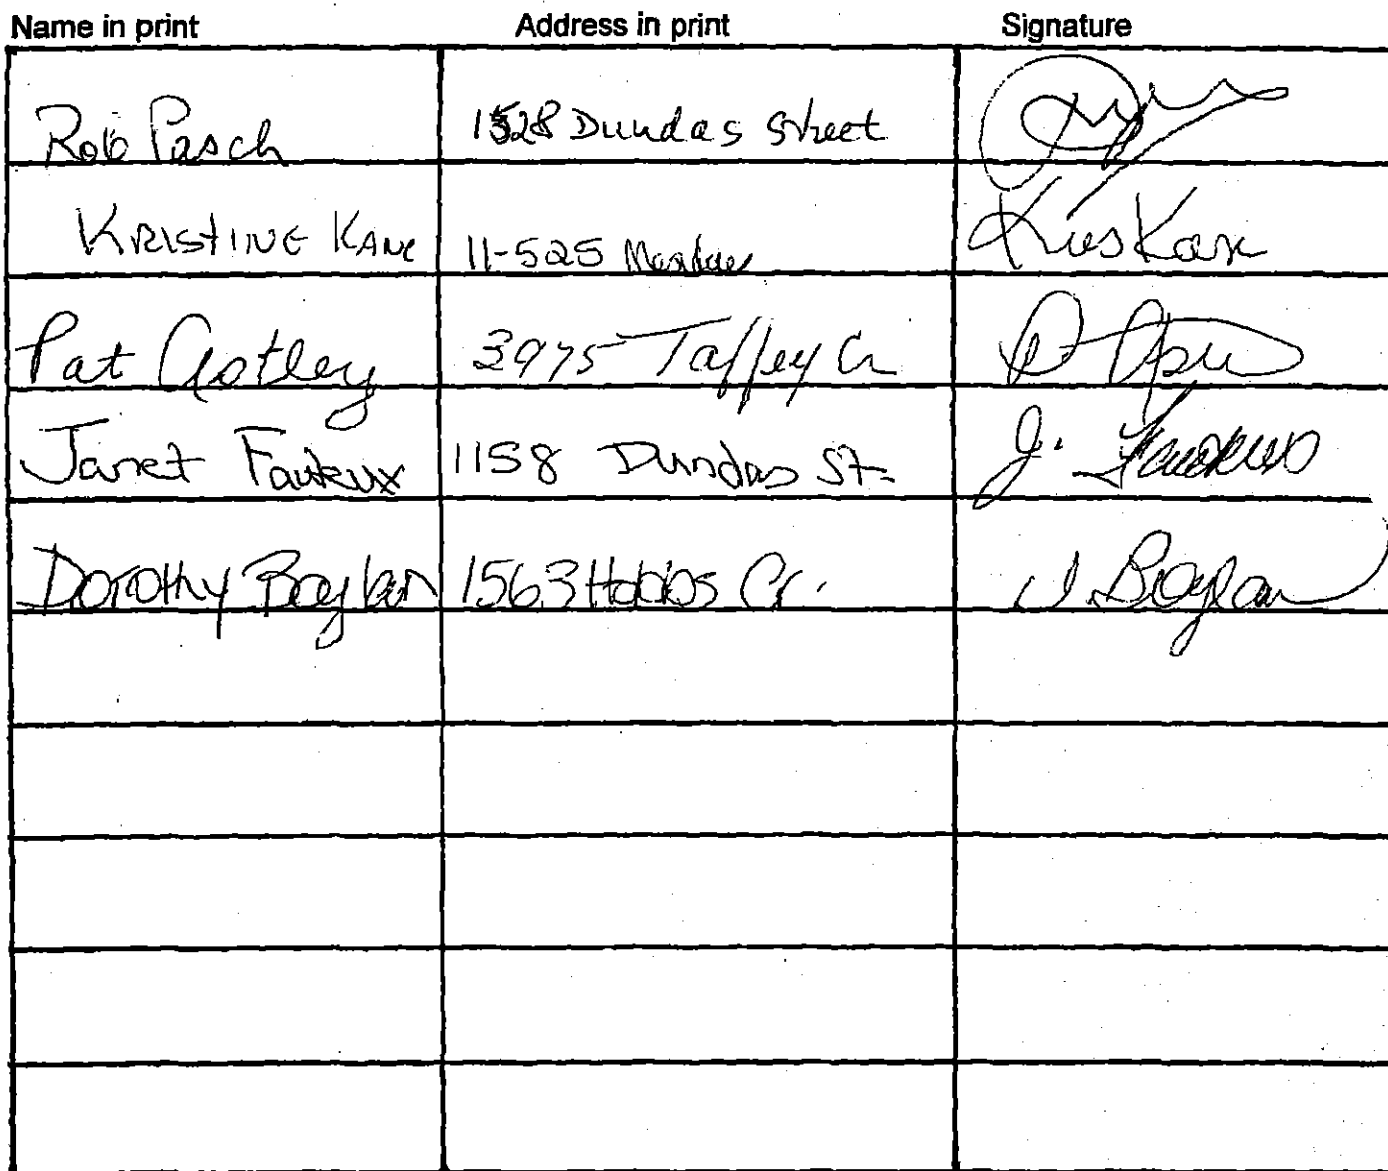 Name in print Address in print Signature
Rob Pasch 1528 Dundas Street
KRISTINE KANE 11-525 Kris Kane
Pat Astley 3975 Taffey Cr
Janet Fauteux 1158 Dundas St. J. Fauteux
Dorothy Boylan 1563 Hobbs Cr. D. Boylan